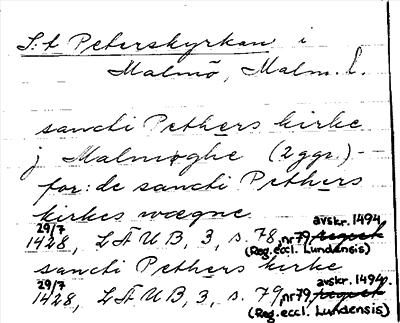 S:t Peterskyrkan i
Malmö, Malm. l.
sancti Pethers kirke
j Malmøghe (2 ggr) -
for: de sancti Pethers
kirkes wægne
29/7 1428, LÄUB, 3, s. 78, nr 79, avskr. 1494. (Reg. eccl. Lundensis)
sancti Pethers kirke
29/7 1428, LÄUB, 3, s. 79, nr 79, avskr. 1494. (Reg. eccl. Lundensis)